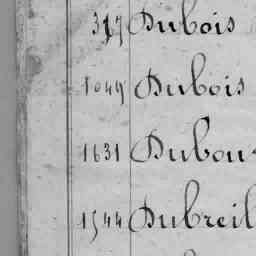 317 Dubois
1049 Dubois
1631
1544 Dubreil